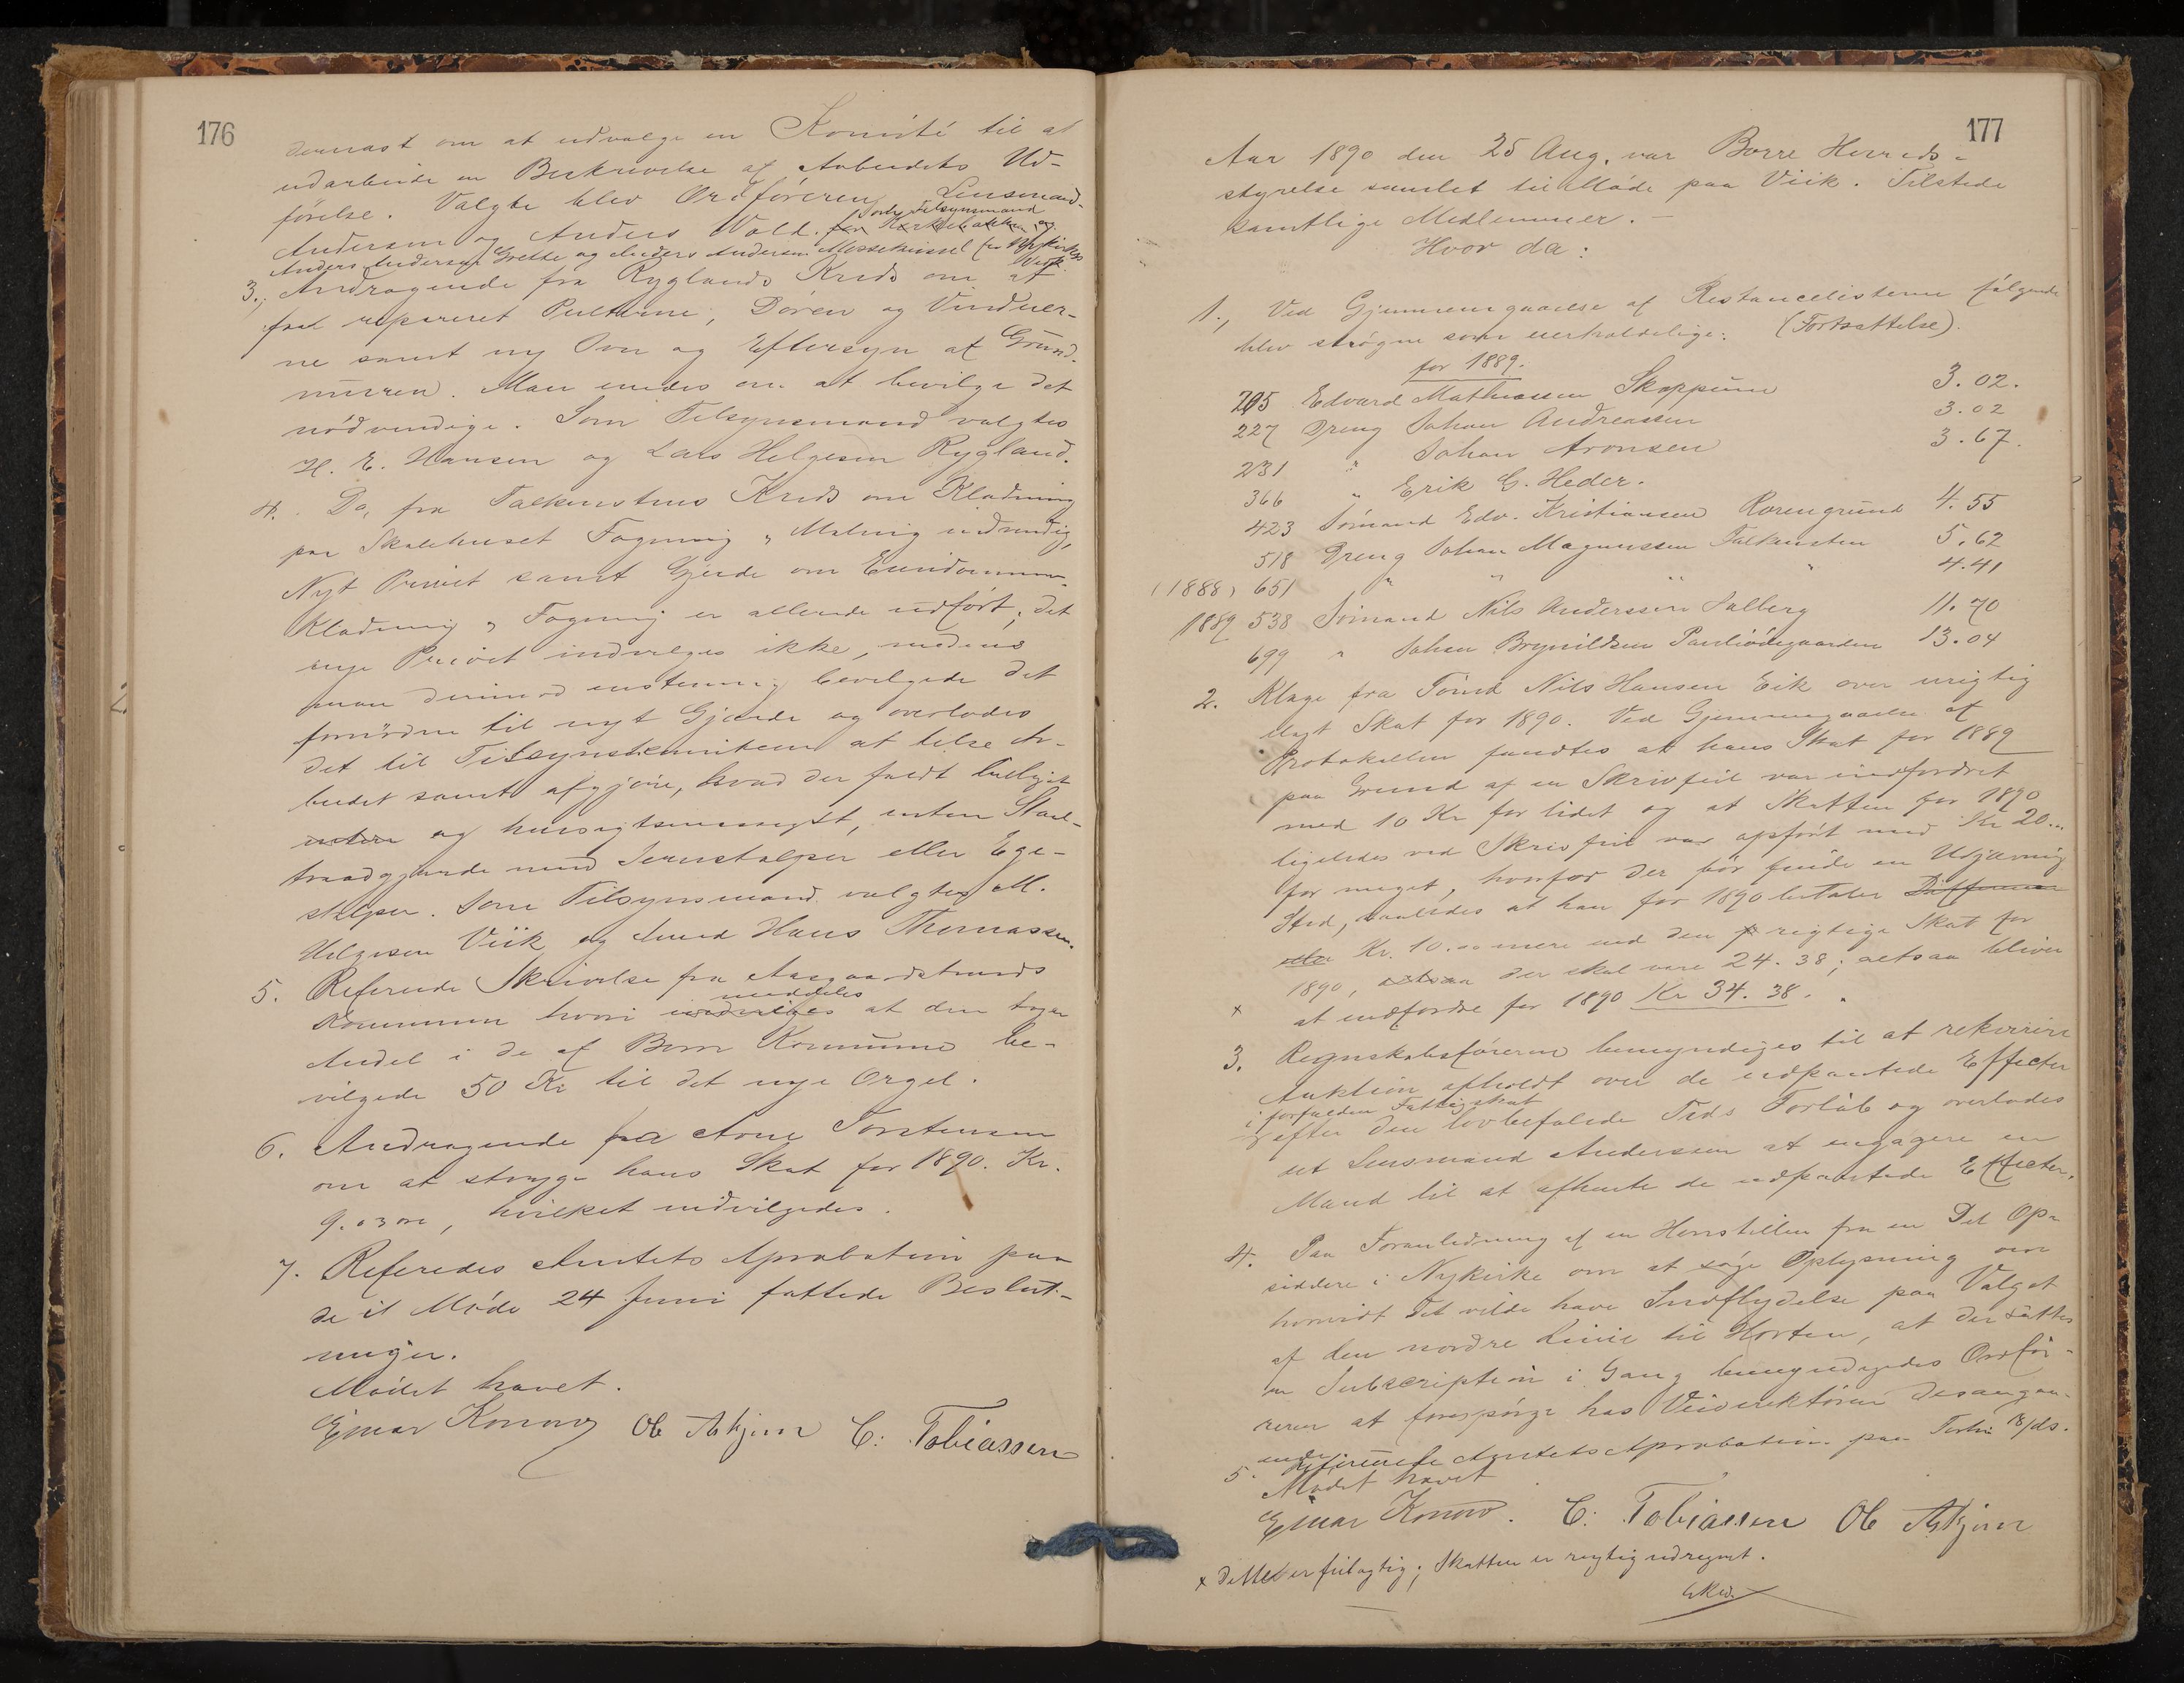 176
dernæst om at udvælge en Komité til at
udarbeide en Beskrivelse af Arbeidets Ud-
førelse. Valgte blev Ordføreren, Lensmand
Anderssen og Anders Wold. som Tilsynsmænd
Anders Andersen Grette og Anders Andersen for Nykirke
3., Andragende fra Ryglands Kreds om at
faa repareret Pultterne, Døren og Vinduer-
ne samt ny Ovn og Eftersyn af Grund-
muren. Man enedes om at bevilge det
nødvendige. Som Tilsynsmænd valgtes
H. E. Hansen og Lars Helgesen Rygland.
4. Do. fra Falkenstens Kreds om Klædning
paa Skolehuset Fagning, Maling indvendig,
Nyt Privet samt Gjerde om Eiendommen.
Klædning, Fagning er allerede udført; det
nye Privet indvilges ikke, medens
man derimod enstemmig bevilgede det
fornødne til nyt Gjærde og overlodes
det til Tilsynskomiteen at lede Ar-
beidet samt afgjøre, hvad der faldt billigst
og hensigtsmæssigst, enten Staal-
traadgjærde med Jernstolper eller Ege-
stolper. Som Tilsynsmænd valgtes M.
Helgesen Viik og Smed Hans Thomassen.
5. Refererede Skrivelse fra Aasgaardstrands
meddeles
Kommune hvori indvilges at den tager
Andel i de af Borre Kommune be-
vilgede 50 Kr til det nye Orgel.
6. Andragende fra Arne Torstensen
om at stryge hans Skat for 1890. Kr.
9.03 øre, hvilket indvilgedes.
7. Referedes Amtets Aprobation paa
de it Møde 24 Juni fattede Beslut-
ninger.
Mødet hævet.
Einar Konow Ole Askjem C: Tobiassen
177
Aar 1890 den 25 Aug. var Borre Herreds-
styrelse samlet til Møde paa Viik. Tilstede
samtlige Medlemmer.-
Hvor da:
1., Ved Gjennemgaaelse af Restancelisterne følgende
blev strøgne som uerholdelige: (Fortsættelse).
for 1889.
205 Edvard Mathiassen Skoppum 3.02.
227 Dreng Johan Andreassen 3.02
231 " Johan Aronsen 3.67.
366 " Erik G. Heder.
423 Sømand Edv. Kristiansen Rorengrund 4.55
518 Dreng Johan Magnussen Falkensten 5.62
(1888) 651 " " " " 4.41
1889 538 Sømand Nils Anderssen Solberg 11.70
699 " Johan Brynildsen 13.04
2. Klage fra Tømd Nils Hansen Eik over urigtig
ilagt Skat for 1890. Ved Gjennemgaaelse af
Protokollen fandtes at hans Skat for 1889
paa Grund af en Skrivfeil var indfordret
med 10 Kr for lidet og at Skatten for 1890
ligeledes ved Skrivfeil var opført med Kr 20...
for meget, hvorfor der bør finde en Udjævning
Sted, saaledes at han for 1890 betaler Differensen
eller Kr. 10.00 mere end den rigtige Skat for
1890, altsaa der skal være 24.38; altsaa bliver
x at indfordre for 1890 Kr 34.38.
3. Regnskabsføreren bemyndiges til at rekvirere
Auktion afholdt over de udpantede Effecter
i forfalden Fattigskat
efter den lovbefalede Tids Forløb og overlodes
det Lensmand Anderssen at engagere en
Mand til at afhente de udpantede Effecter.
4. Paa Foranledning af en Henstillen fra en Del Op-
siddere i Nykirke om at søge Oplysning om
hvorvidt det vilde have Indflydelse paa Valget
af den nordre Linie til Horten, at der sættes
en Subscription i Gang bemyndigedes Ordfø-
reren at forespørge hos Veidirektøren desangaa-
ende.
5. Refererede Amtets Aprobation paa
Mødet hævet
Einar Konow. C: Tobiassen Ole Askjem
x Dette er feilagtig; Skatten er rigtig udregnet.